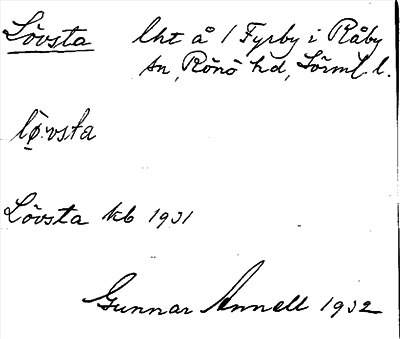 Lövsta lht å 1 Fyrby i Råby
sn, Rönö hd, Sörml. l.
lø̱:vsta
Lövsta kb 1931
Gunnar Annell 1932